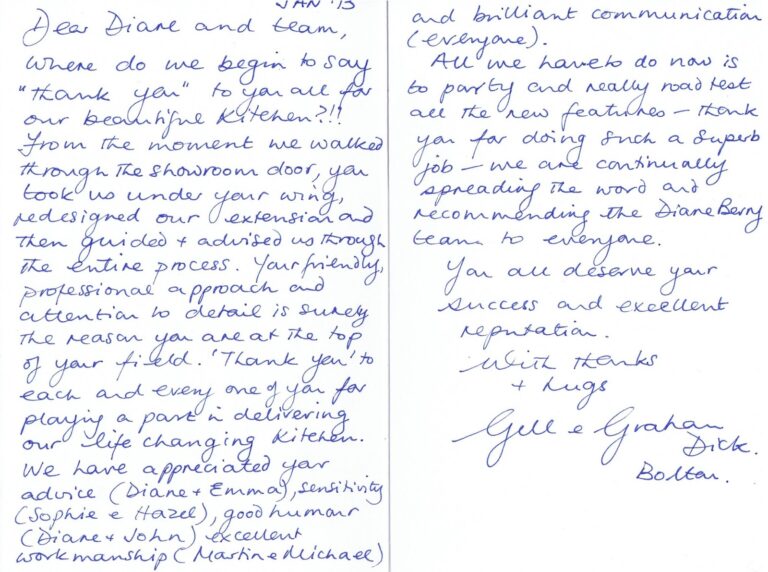 JAN '13
Dear Diane and team,
Where do we begin to say
"thank you" to you all for
our beautiful kitchen?!!
From the moment we walked
through the showroom door, you
took us under your wing,
redesigned our extension and
then guided + advised us through
the entire process. Your friendly,
professional approach and
attention to detail is surely
the reason you are at the top
of your field. 'Thank you' to
each and every one of you for
playing a part in delivering
our life changing kitchen.
We have appreciated your
advice (Diane + Emma), sensitivity
(Sophie e Hazel), good humour
(Diane + John) excellent
workmanship (Martin e Michael)
and brilliant communication
(everyone).
All we have to do now is
to party and really road test
all the new features – thank
you for doing such a superb
job – we are continually
spreading the word and
recommending the Diane Berry
team to everyone.
You all deserve your
success and excellent
reputation.
With thanks
+ hugs
Gill e Graham
Dick.
Bolton.